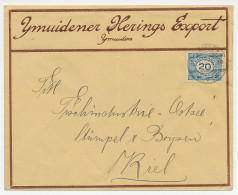 Ymuidener Herings Export
Ymuiden
20
Fischindustrie-Ostsee
Stümpel & Boysen
Kiel